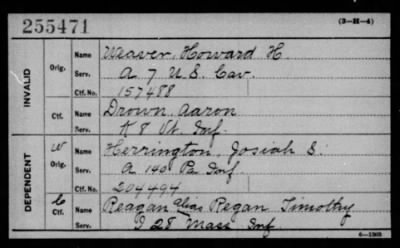 255471
(3-H-4)
INVALID
Orig.
Name Weaver, Howard H.
Serv. A 7 U.S. Cav.
Ctf. No. 157488
Ctf.
Name Drown, Aaron
Serv. K 8 Vt. Inf.
DEPENDENT
W
Orig.
Name Herrington, Josiah S.
Serv. A 140 Pa Inf.
Ctf. No. 294494
C
Ctf.
Name Reagan alias Regan, Timothy
Serv. I 28 Mass Inf